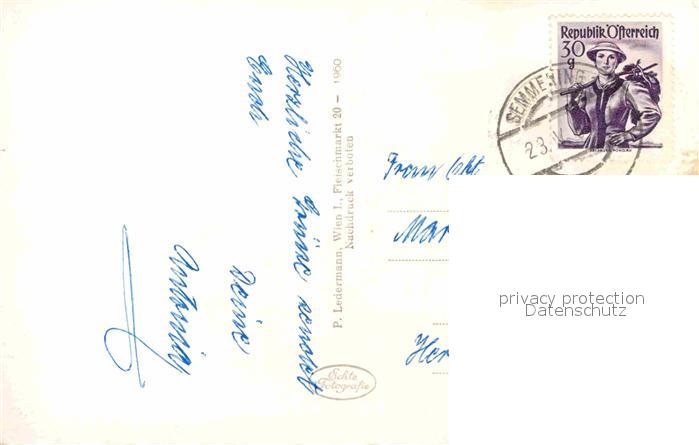 Herzliche Grüsse sendet
Euch
Deine
P. Ledermann, Wien I., Fleischmarkt 20 – 1960
Nachdruck verboten
Echte
Fotografie
Republik Österreich
30
g
SEMMERING
23.
Mar
Her
privacy protection
Datenschutz